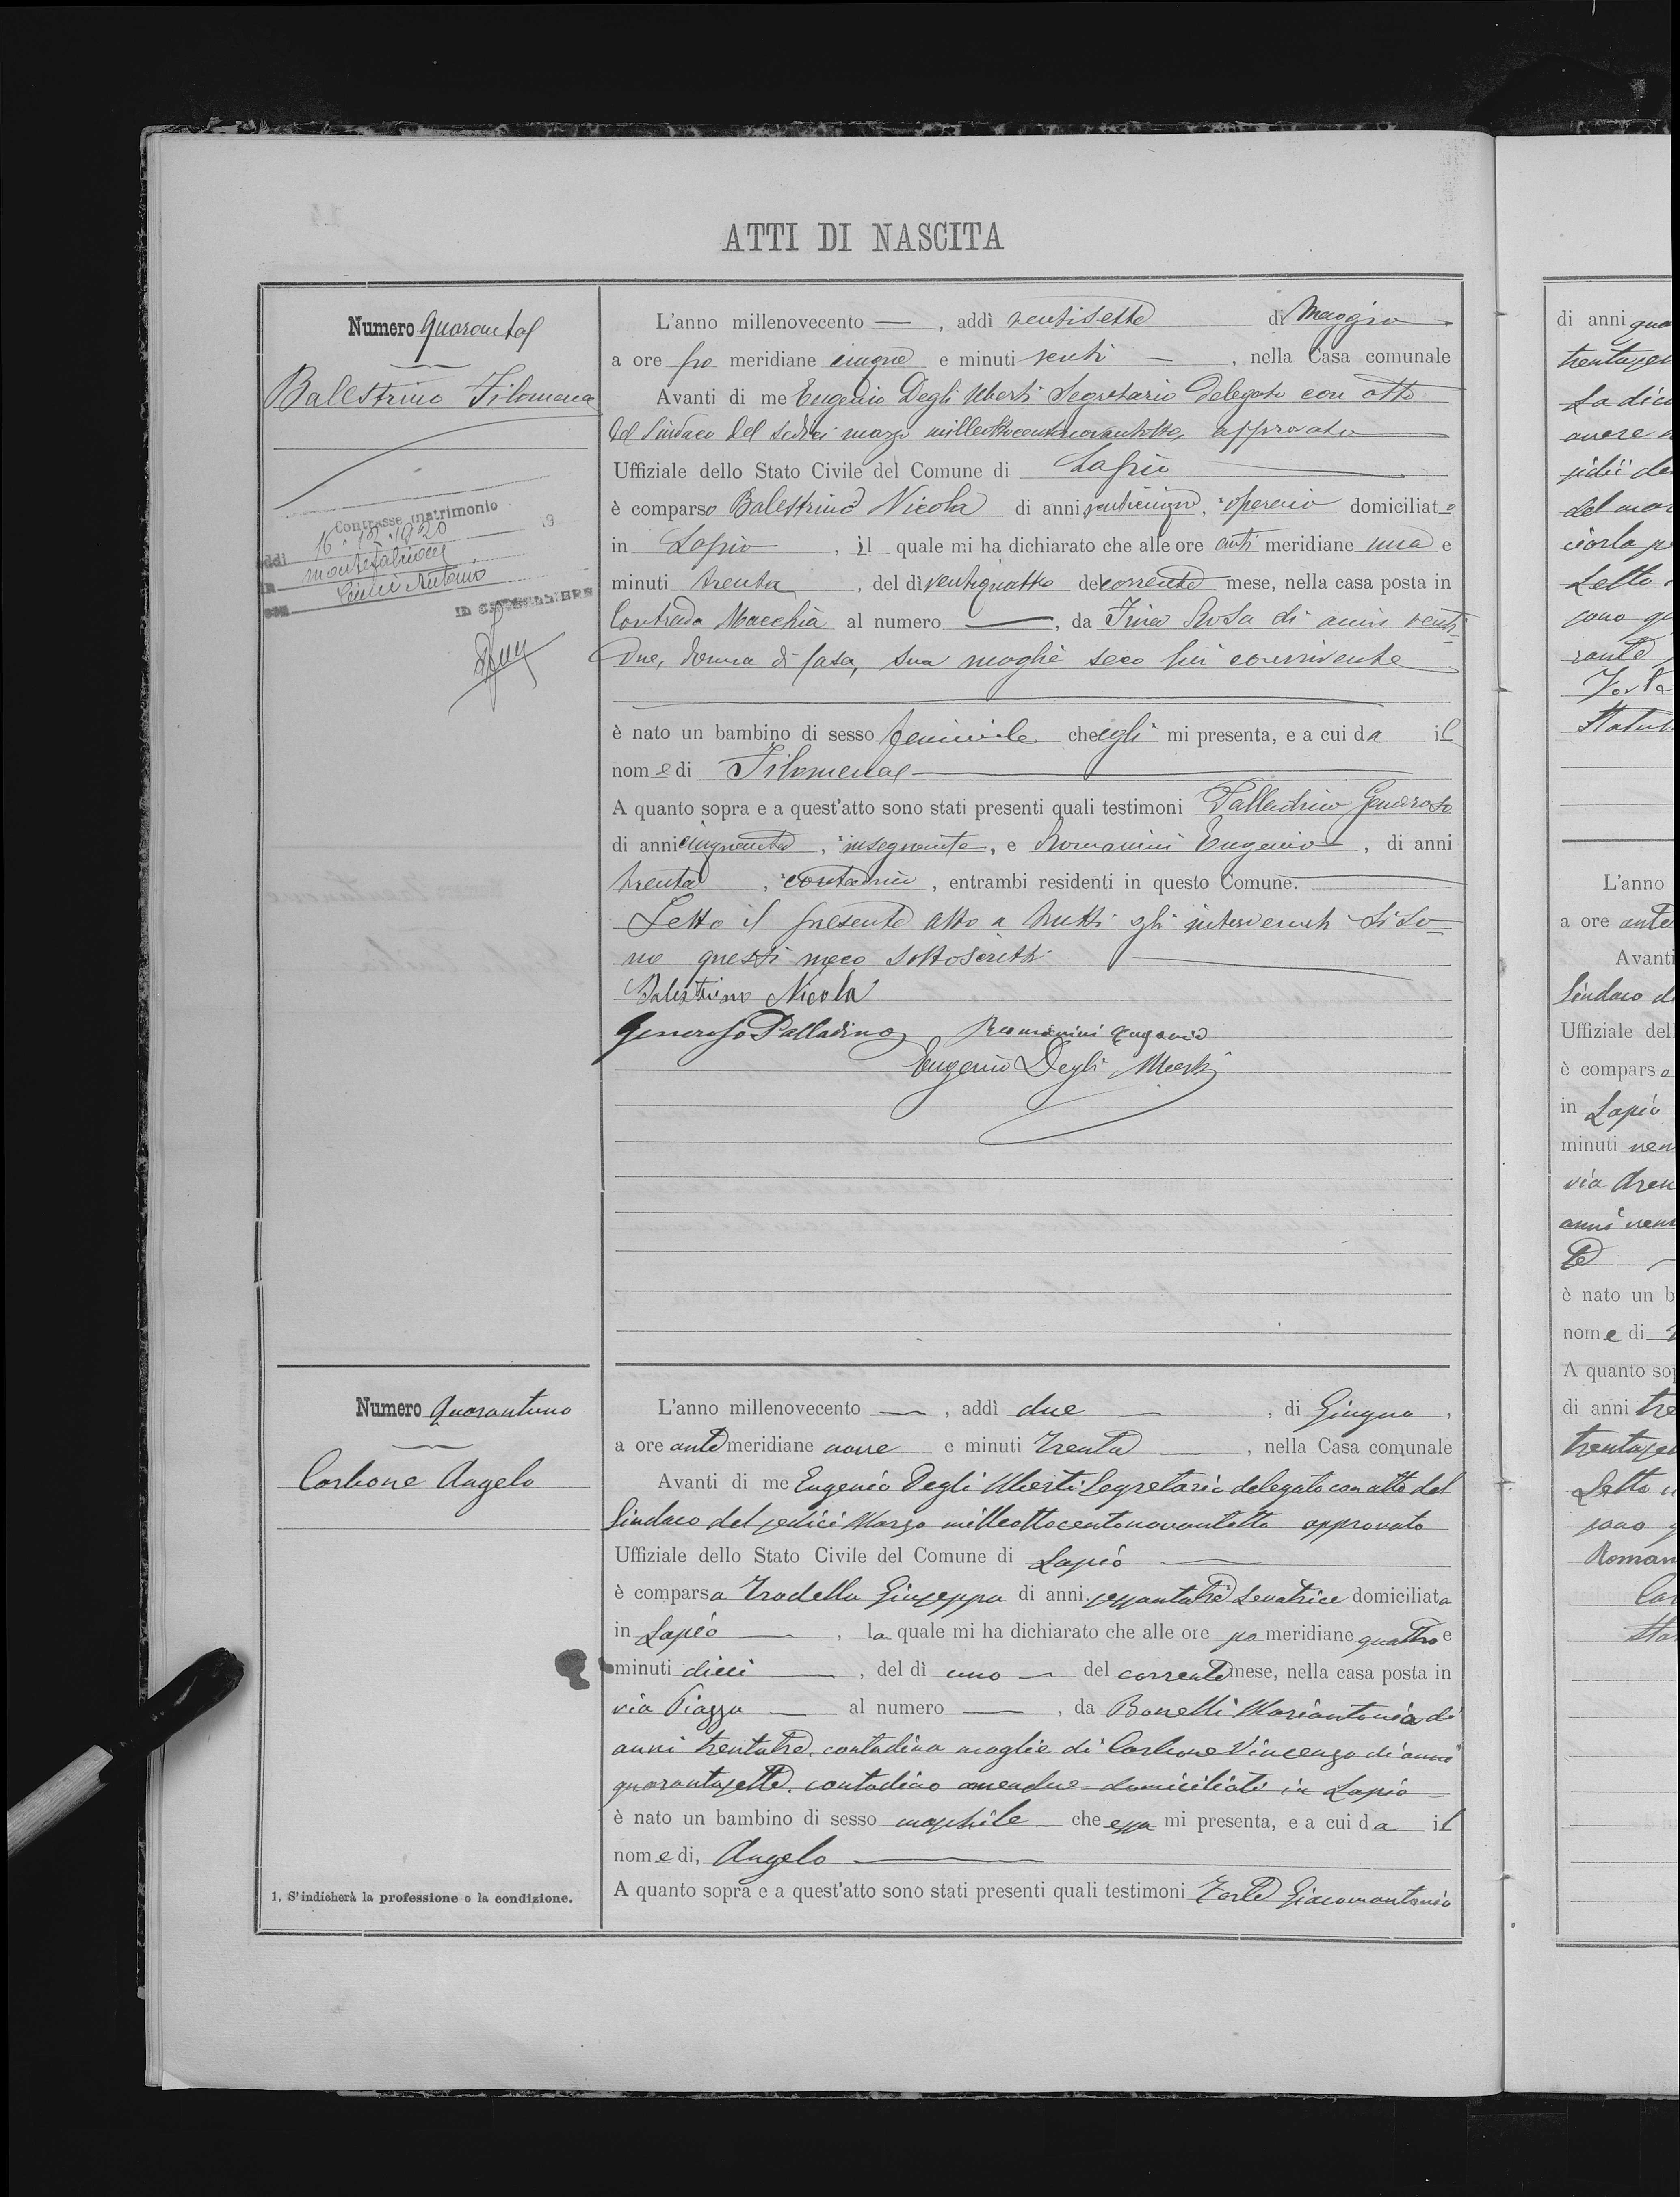 ATTI DI NASCITA
Numero Quaranta
Balestrino Filomena
Contrasse matrimonio
addì 16.12.1920 19
in Montefalcione
con Antonio
IL CANCELLIERE
L'anno millenovecento — , addì ventisette di Maggio
a ore po meridiane cinque e minuti venti — , nella Casa comunale
Avanti di me Eugenio Degli Uberti Segretario delegato con atto
del Sindaco del sedici marzo milleottocentonovantotto, approvato
Uffiziale dello Stato Civile del Comune di Lapio
è comparso Balestrino Nicola di anni venticinque, operaio domiciliato
in Lapio , il quale mi ha dichiarato che alle ore anti meridiane una e
minuti trenta , del dì ventiquattro del corrente mese, nella casa posta in
Contrada Macchia al numero — , da Rosa di anni venti-
due, donna di casa, sua moglie seco lui convivente
è nato un bambino di sesso feminile che egli mi presenta, e a cui dà il
nome di Filomena
A quanto sopra e a quest'atto sono stati presenti quali testimoni Palladino Generoso
di anni cinquanta, insegnante, e Romanini Eugenio , di anni
trenta , contadino , entrambi residenti in questo Comune.
Letto il presente atto a tutti gli intervenuti si so-
no questi meco sottoscritti
Balestrino Nicola
Generoso Palladino Romanini Eugenio
Eugenio Degli Uberti
Numero Quarantuno
Carbone Angelo
L'anno millenovecento — , addì due — , di Giugno ,
a ore ante meridiane nove e minuti trenta — , nella Casa comunale
Avanti di me Eugenio Degli Uberti Segretario delegato con atto del
Sindaco del sedici Marzo milleottocentonovantotto approvato
Uffiziale dello Stato Civile del Comune di Lapio
è comparsa Trodella Giuseppa di anni sessantatre Levatrice domiciliata
in Lapio — , la quale mi ha dichiarato che alle ore po meridiane quattro e
minuti dieci — , del dì uno — del corrente mese, nella casa posta in
via Piazza — al numero — , da Bonelli Mariantonia di
anni trentatre, contadina moglie di Carbone Vincenzo di anni
quarantasette, contadino amendue domiciliati in Lapio
è nato un bambino di sesso maschile che essa mi presenta, e a cui dà il
nome di, Angelo
A quanto sopra e a quest'atto sono stati presenti quali testimoni Forte Giacomantonio
1. S'indicherà la professione o la condizione.
di anni
La dico
del
Letto
L'anno
a ore ante
Avanti
Sindaco d
Uffiziale del
è comparso
in Lapio
minuti
via
anni
è nato un b
nome di
A quanto so
di anni tre
Letto
sono
Roman
Car